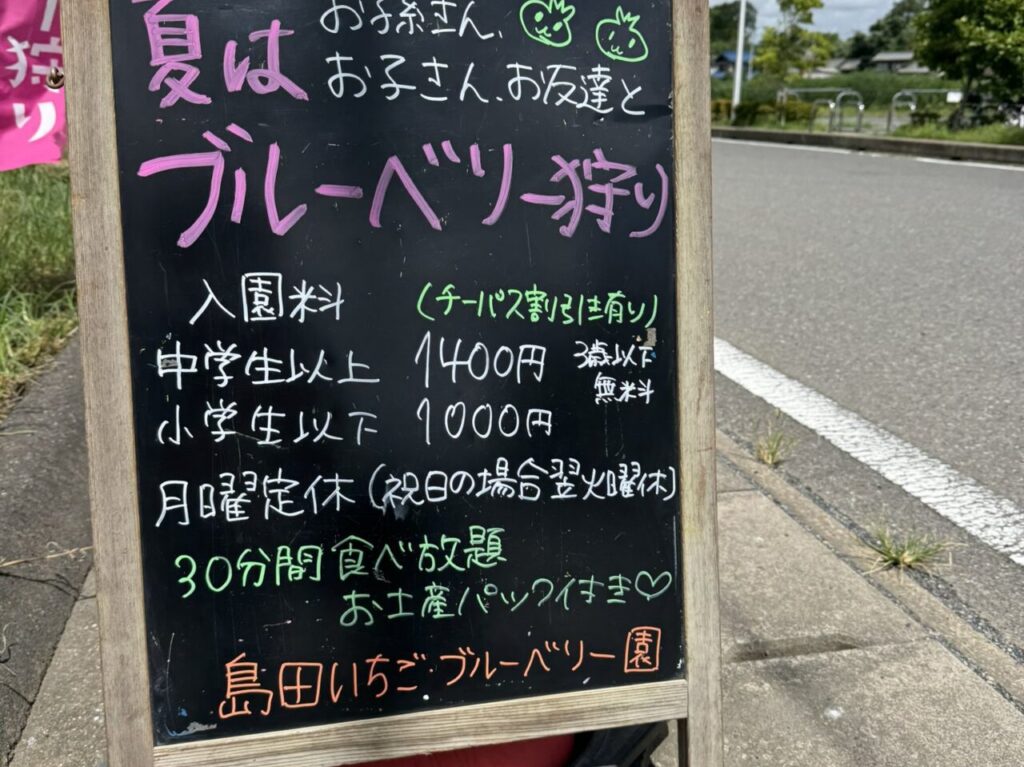 狩り
夏は
お子孫さん、
お子さん、お友達と
ブルーベリー狩り
入園料
(チーパス割引は有り)
中学生以上 1400円
3歳以下
無料
小学生以下 1000円
月曜定休(祝日の場合翌火曜休)
30分間 食べ放題
お土産パック付き♡
島田いちご・ブルーベリー園